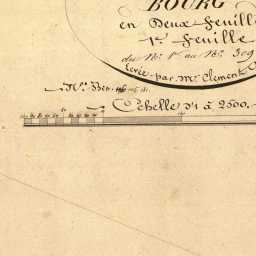 BOURG
en Deux feuill
1re feuille
du No. 1er au No. 309
Levée par Mr Clement
Echelle d'1 à 2500.